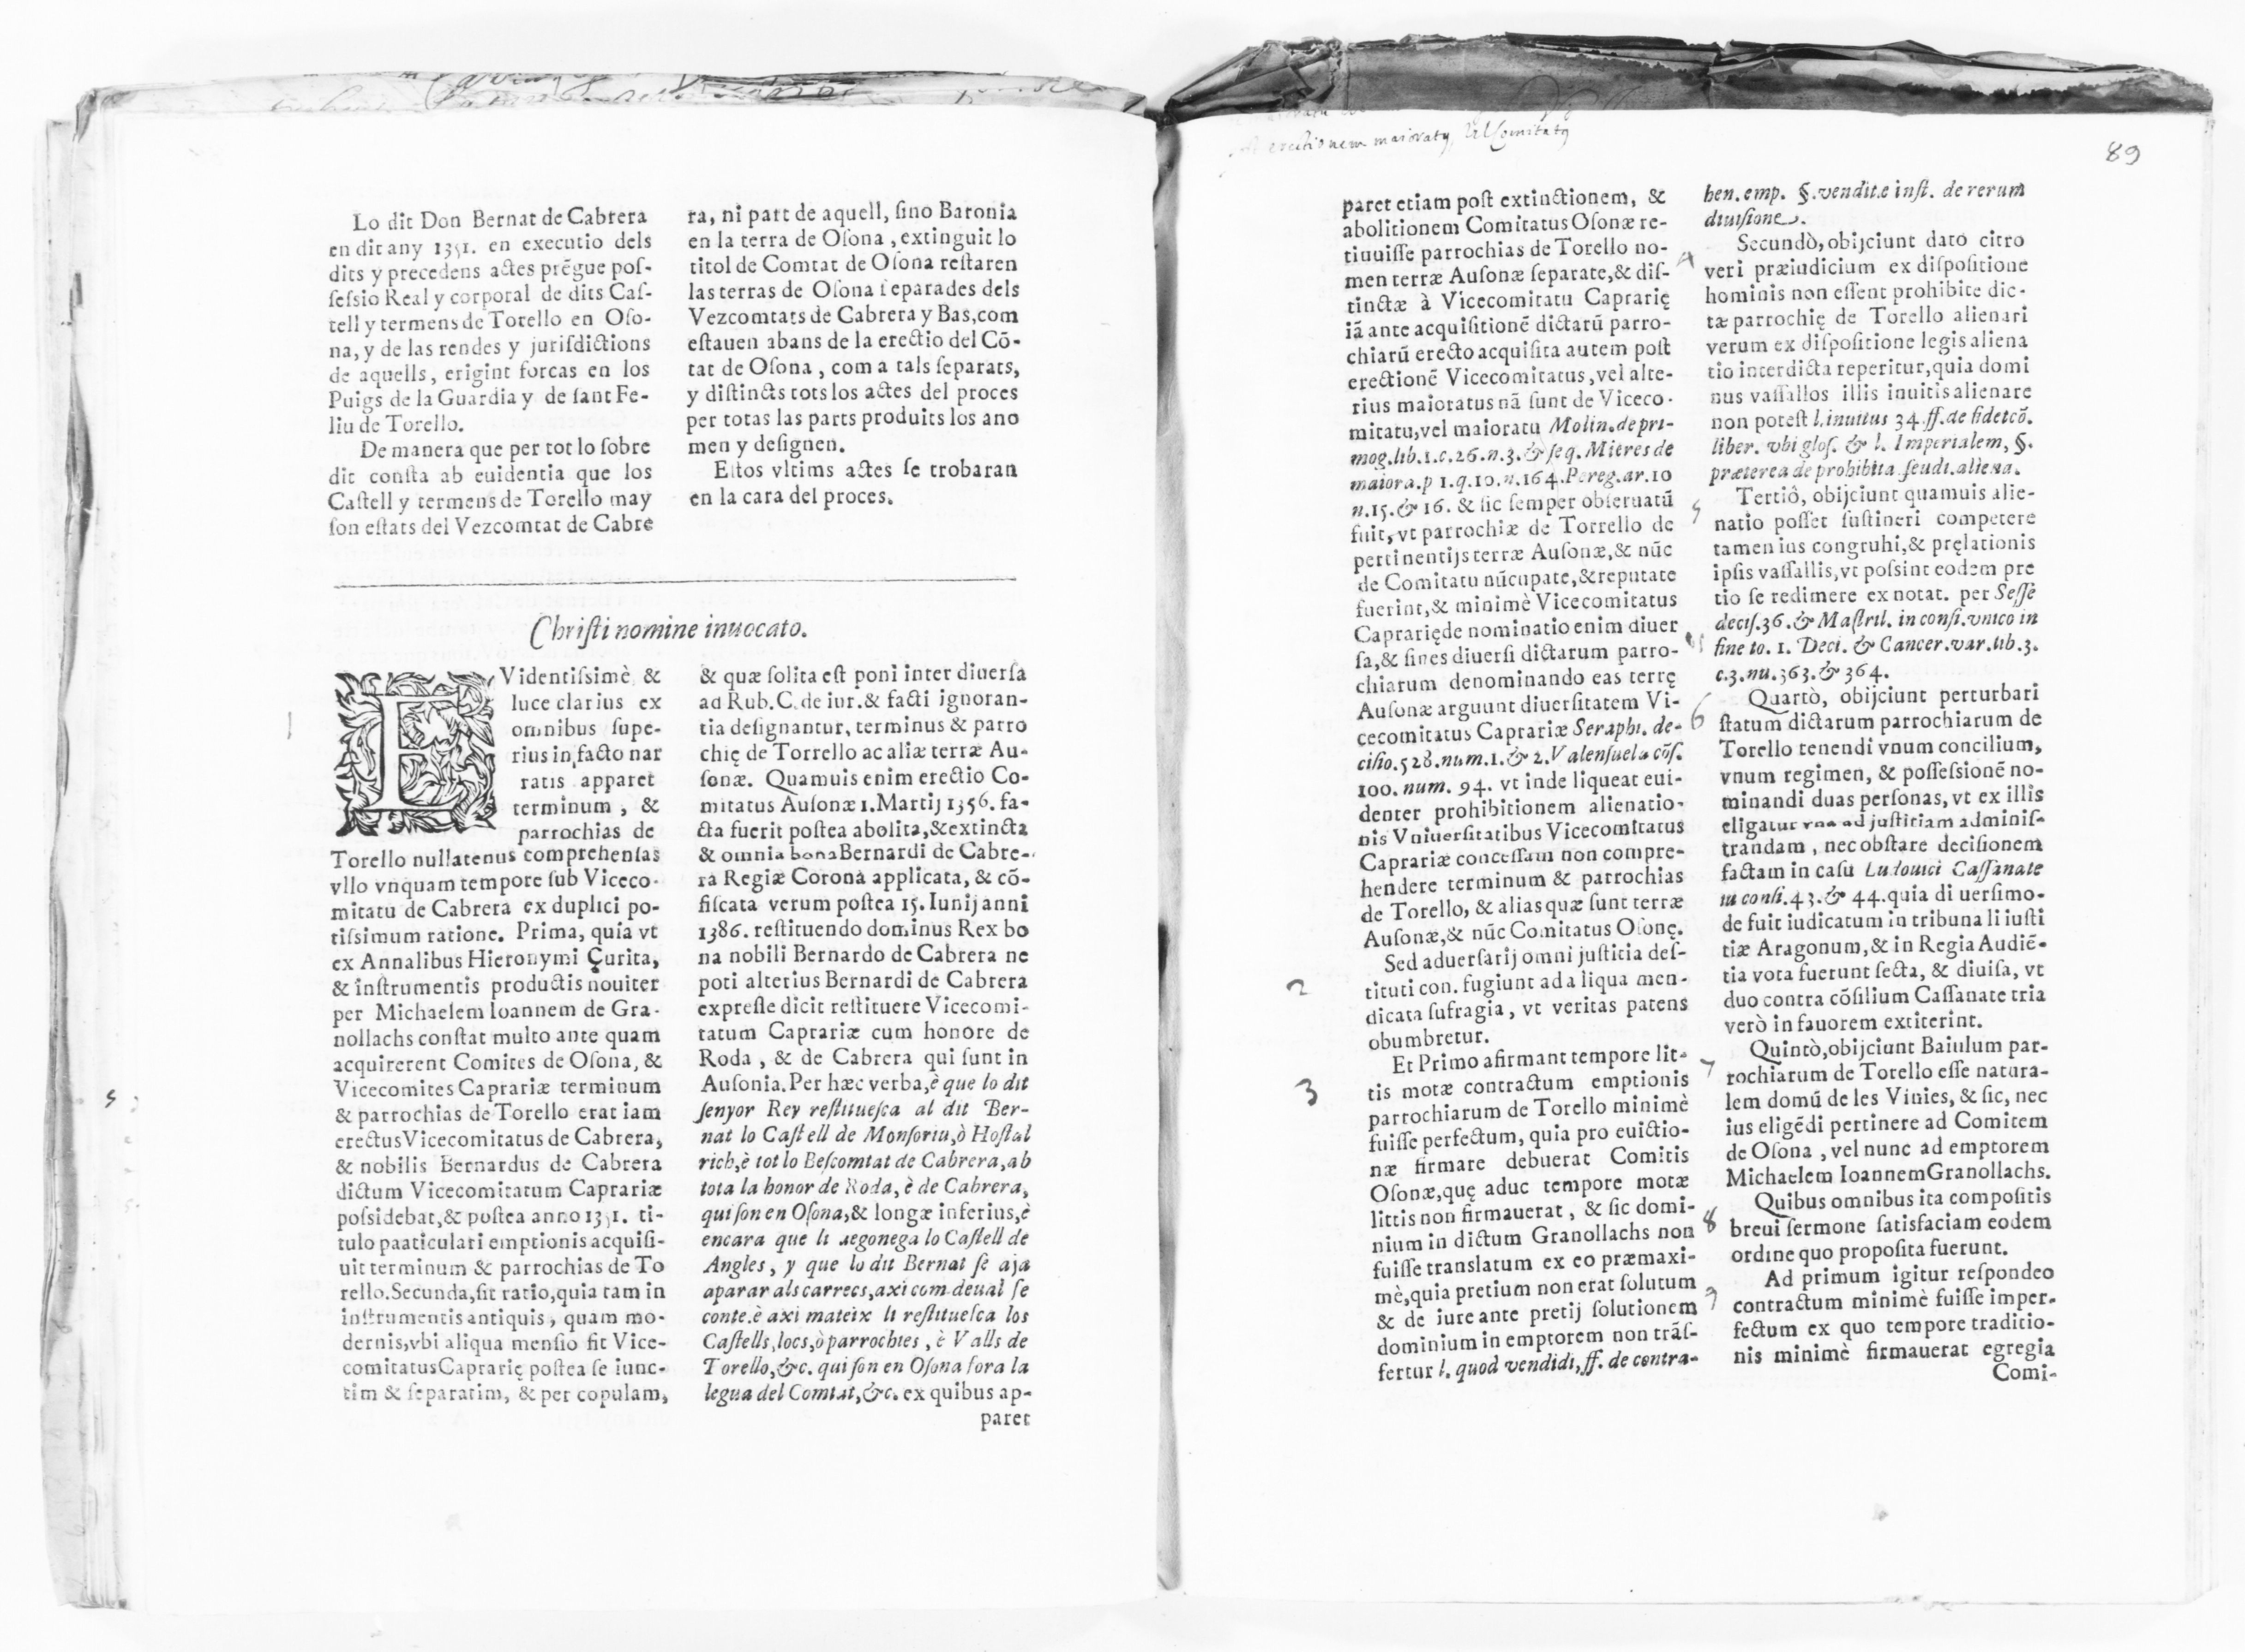 Lo dit Don Bernat de Cabrera
en dit any 1351. en executio dels
dits y precedens actes prẽgue pos-
sessio Real y corporal de dits Cas-
tell y termens de Torello en Oso-
na, y de las rendes y jurisdictions
de aquells, erigint forcas en los
Puigs de la Guardia y de sant Fe-
liu de Torello.
De manera que per tot lo sobre
dit consta ab euidentia que los
Castell y termens de Torello may
son estats del Vezcomtat de Cabre
ra, ni part de aquell, sino Baronia
en la terra de Osona, extinguit lo
titol de Comtat de Osona restaren
las terras de Osona separades dels
Vezcomtats de Cabrera y Bas, com
estauen abans de la erectio del Cõ-
tat de Osona, com a tals separats,
y distincts tots los actes del proces
per totas las parts produits los ano
men y designen.
Estos vltims actes se trobaran
en la cara del proces.
Christi nomine inuocato.
EVidentissimè &
luce clarius ex
omnibus supe-
rius in facto nar
ratis apparet
terminum, &
parrochias de
Torello nullatenus comprehensas
vllo vnquam tempore sub Viceco-
mitatu de Cabrera ex duplici po-
tissimum ratione. Prima, quia vt
ex Annalibus Hieronymi Çurita,
& instrumentis productis nouiter
per Michaelem Ioannem de Gra-
nollachs constat multo ante quam
acquirerent Comites de Osona, &
Vicecomites Caprariæ terminum
& parrochias de Torello erat iam
erectus Vicecomitatus de Cabrera,
& nobilis Bernardus de Cabrera
dictum Vicecomitatum Caprariæ
possidebat, & postea anno 1351. ti-
tulo paaticulari emptionis acquisi-
uit terminum & parrochias de To
rello. Secunda, sit ratio, quia tam in
instrumentis antiquis, quam mo-
dernis, vbi aliqua mensio fit Vice-
comitatus Caprarię postea se iunc-
tim & separatim, & per copulam,
& quæ solita est poni inter diuersa
ad Rub. C. de iur. & facti ignoran-
tia designantur, terminus & parro
chię de Torrello ac aliæ terræ Au-
sonæ. Quamuis enim erectio Co-
mitatus Ausonæ 1. Martij 1356. fa-
cta fuerit postea abolita, & extincta
& omnia bona Bernardi de Cabre-
ra Regiæ Corona applicata, & cõ-
fiscata verum postea 15. Iunij anni
1386. restituendo dominus Rex bo
na nobili Bernardo de Cabrera ne
poti alterius Bernardi de Cabrera
expresse dicit restituere Vicecomi-
tatum Caprariæ cum honore de
Roda, & de Cabrera qui sunt in
Ausonia. Per hæc verba, è que lo dit
senyor Rey restituesca al dit Ber-
nat lo Castell de Monsoriu, ò Hostal
rich, è tot lo Bescomtat de Cabrera, ab
tota la honor de Roda, è de Cabrera,
qui son en Osona, & longæ inferius, è
encara que li aegonega lo Castell de
Angles, y que lo dit Bernat se aja
aparar als carrecs, axi com deual se
conte. è axi mateix li restituesca los
Castells, locs, ò parrochies, è Valls de
Torello, &c. qui son en Osona fora la
legua del Comtat, &c. ex quibus ap-
paret
erectionem maioratus, Vel Comitatus
89
paret etiam post extinctionem, &
abolitionem Comitatus Osonæ re-
tinuisse parrochias de Torello no-
men terræ Ausonæ separate, & dis-
tinctæ à Vicecomitatu Caprarię
iã ante acquisitionẽ dictarũ parro-
chiarũ erecto acquisita autem post
erectionẽ Vicecomitatus, vel alte-
rius maioratus nã sunt de Viceco-
mitatu, vel maioratu Molin. de pri-
mog. lib. 1. c. 26. n. 3. & seq. Mieres de
maiora. p 1. q. 10. n. 164. Pereg. ar. 10
n. 15. & 16. & sic semper obseruatũ
fuit, vt parrochiæ de Torrello de
pertinentijs terræ Ausonæ, & nũc
de Comitatu nũcupate, & reputate
fuerint, & minimè Vicecomitatus
Caprarię de nominatio enim diuer
sa, & fines diuersi dictarum parro-
chiarum denominando eas terrę
Ausonæ arguunt diuersitatem Vi-
cecomitatus Caprariæ Seraphi. de-
cisio. 528. num. 1. & 2. Valensuela cõs.
100. num. 94. vt inde liqueat eui-
denter prohibitionem alienatio-
nis Vniuersitatibus Vicecomitatus
Caprariæ concessam non compre-
hendere terminum & parrochias
de Torello, & alias quæ sunt terræ
Ausonæ, & nũc Comitatus Osonę.
2
Sed aduersarij omni justitia des-
tituti con. fugiunt ad aliqua men-
dicata sufragia, vt veritas patens
obumbretur.
3
Et Primo afirmant tempore lit-
tis motæ contractum emptionis
parrochiarum de Torello minimè
fuisse perfectum, quia pro euictio-
næ firmare debuerat Comitis
Osonæ, quę aduc tempore motæ
littis non firmauerat, & sic domi-
nium in dictum Granollachs non
fuisse translatum ex eo præmaxi-
mè, quia pretium non erat solutum
& de iure ante pretij solutionem
dominium in emptorem non trãs-
fertur l. quod vendidi, ff. de contra-
hen. emp. §. venditæ inst. de rerum
diuisione.
4
Secundò, obijciunt dato citro
veri præiudicium ex dispositione
hominis non essent prohibite dic-
tæ parrochię de Torello alienari
verum ex dispositione legis aliena
tio interdicta reperitur, quia domi
nus vassallos illis inuitis alienare
non potest l. inuitus 34. ff. de fideicõ.
liber. vbi glos. & l. Imperialem, §.
præterea de prohibita feudi. aliena.
5
Tertiò, obijciunt quamuis alie-
natio posset sustineri competere
tamen ius congruhi, & pręlationis
ipsis vassallis, vt possint eodem pre
tio se redimere ex notat. per Sessè
decis. 36. & Mastril. in consi. vnico in
fine to. 1. Deci. & Cancer. var. lib. 3.
c. 3. nu. 363. & 364.
6
Quartò, obijciunt perturbari
statum dictarum parrochiarum de
Torello tenendi vnum concilium,
vnum regimen, & possessionẽ no-
minandi duas personas, vt ex illis
eligatur vna ad justitiam adminis-
trandam, nec obstare decisionem
factam in casu Ludouici Cassanate
in consi. 43. & 44. quia di uersimo-
de fuit iudicatum in tribunali iusti
tiæ Aragonum, & in Regia Audiẽ-
tia vota fuerunt secta, & diuisa, vt
duo contra cõsilium Cassanate tria
verò in fauorem extiterint.
7
Quintò, obijciunt Baiulum par-
rochiarum de Torello esse natura-
lem domũ de les Vinies, & sic, nec
ius eligẽdi pertinere ad Comitem
de Osona, vel nunc ad emptorem
Michaelem Ioannem Granollachs.
8
Quibus omnibus ita compositis
breui sermone satisfaciam eodem
ordine quo proposita fuerunt.
9
Ad primum igitur respondeo
contractum minimè fuisse imper-
fectum ex quo tempore traditio-
nis minimè firmauerat egregia
Comi-